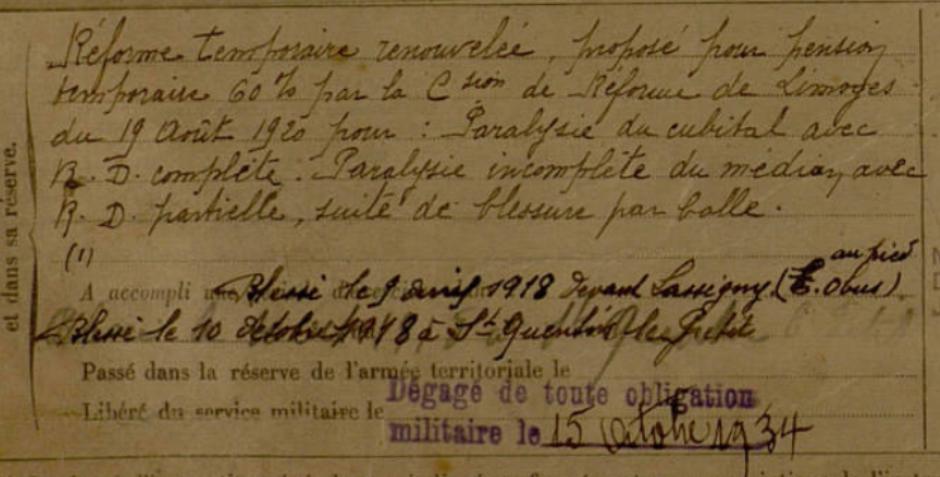 et dans sa réserve.
Réforme temporaire renouvelée, proposé pour pension
temporaire 60% par la Csion de Réforme de Limoges
du 19 Août 1920 pour : Paralysie du cubital avec
R. D. complète. Paralysie incomplète du médian, avec
R. D. partielle, suite de blessure par balle.
(1)
au pied
A accompli une Blessé le 9 avril 1918 devant Lassigny. (E. Obus)
Blessé le 10 Octobre 1918 à St Quentin le Petit
Passé dans la réserve de l'armée territoriale le
Libéré du service militaire le Dégagé de toute obligation
militaire le 15 Octobre 1934